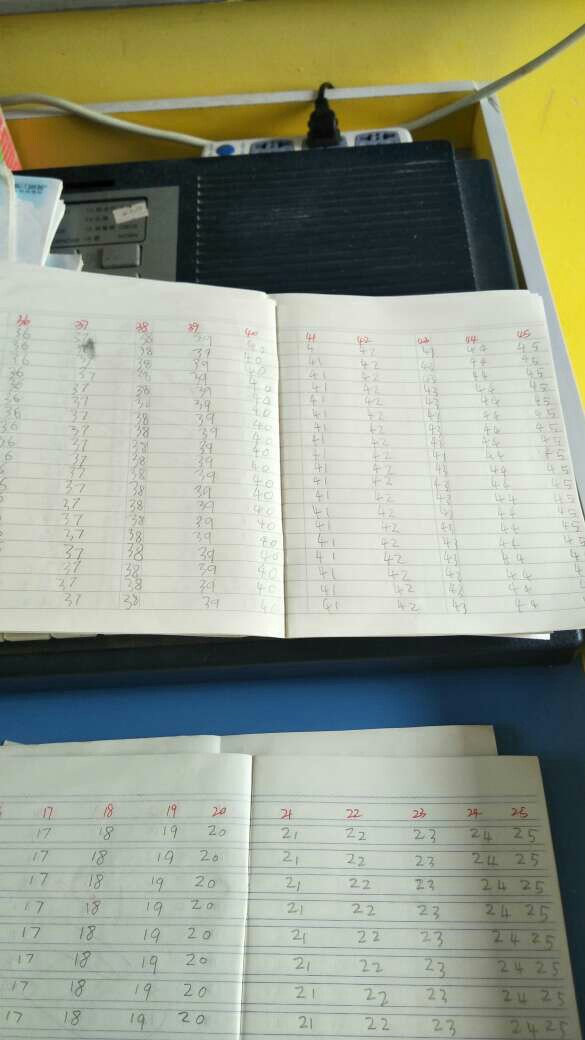 36 37 38 39 40 41 42 43 44 45
36 37 38 39 40 4 42 43 44 45
36 37 38 39 40 41 42 43 44 45
36 37 38 39 40 41 42 43 44 45
36 37 38 39 40 41 42 43 44 45
36 37 38 39 40 41 42 43 44 45
36 37 38 39 40 41 42 43 44 45
36 37 38 39 40 41 42 43 44 45
36 37 38 39 40 41 42 43 44 45
6 37 38 39 40 41 42 43 44 45
6 37 38 39 40 41 42 43 44 45
37 38 39 40 41 42 43 44 45
37 38 39 40 41 42 43 44 45
37 38 39 40 41 42 43 44 45
37 38 39 40 41 42 43 44 45
37 38 39 40 41 42 43 44 45
37 38 39 40 41 42 43 44 4
37 38 39 40 41 42 43 44 4
37 38 39 40 41 42 43 44
37 38 39 40 41 42 43 44
17 18 19 20 21 22 23 24 25
17 18 19 20 21 22 23 24 25
17 18 19 20 21 22 23 24 25
17 18 19 20 21 22 23 24 25
17 18 19 20 21 22 23 24 25
17 18 19 20 21 22 23 24 25
17 18 19 20 21 22 23 24 25
17 18 19 20 21 22 23 24 25
17 18 19 20 21 22 23 24 25